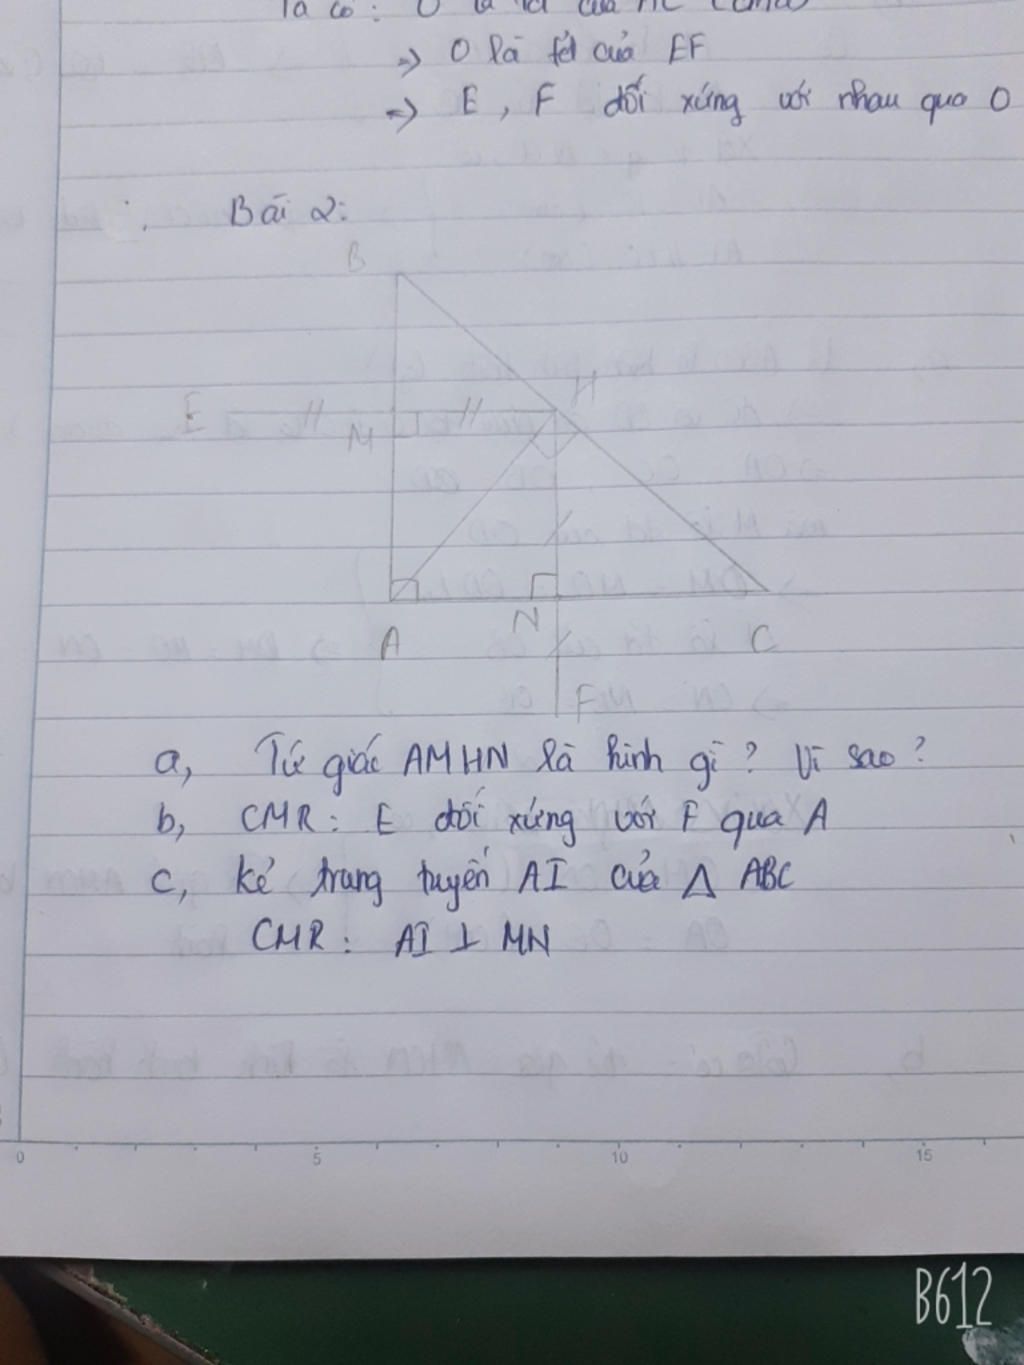 Ta có: O là
⇒ O là tđ của EF
⇒ E, F đối xứng với nhau qua O
Bài 2:
B
E
H
M
N
A
C
F
a, Tứ giác AMHN là hình gì? Vì sao?
b, CMR: E đối xứng với F qua A
c, kẻ trung tuyến AI của △ ABC
CMR: AI ⊥ MN
0 5 10 15
B612